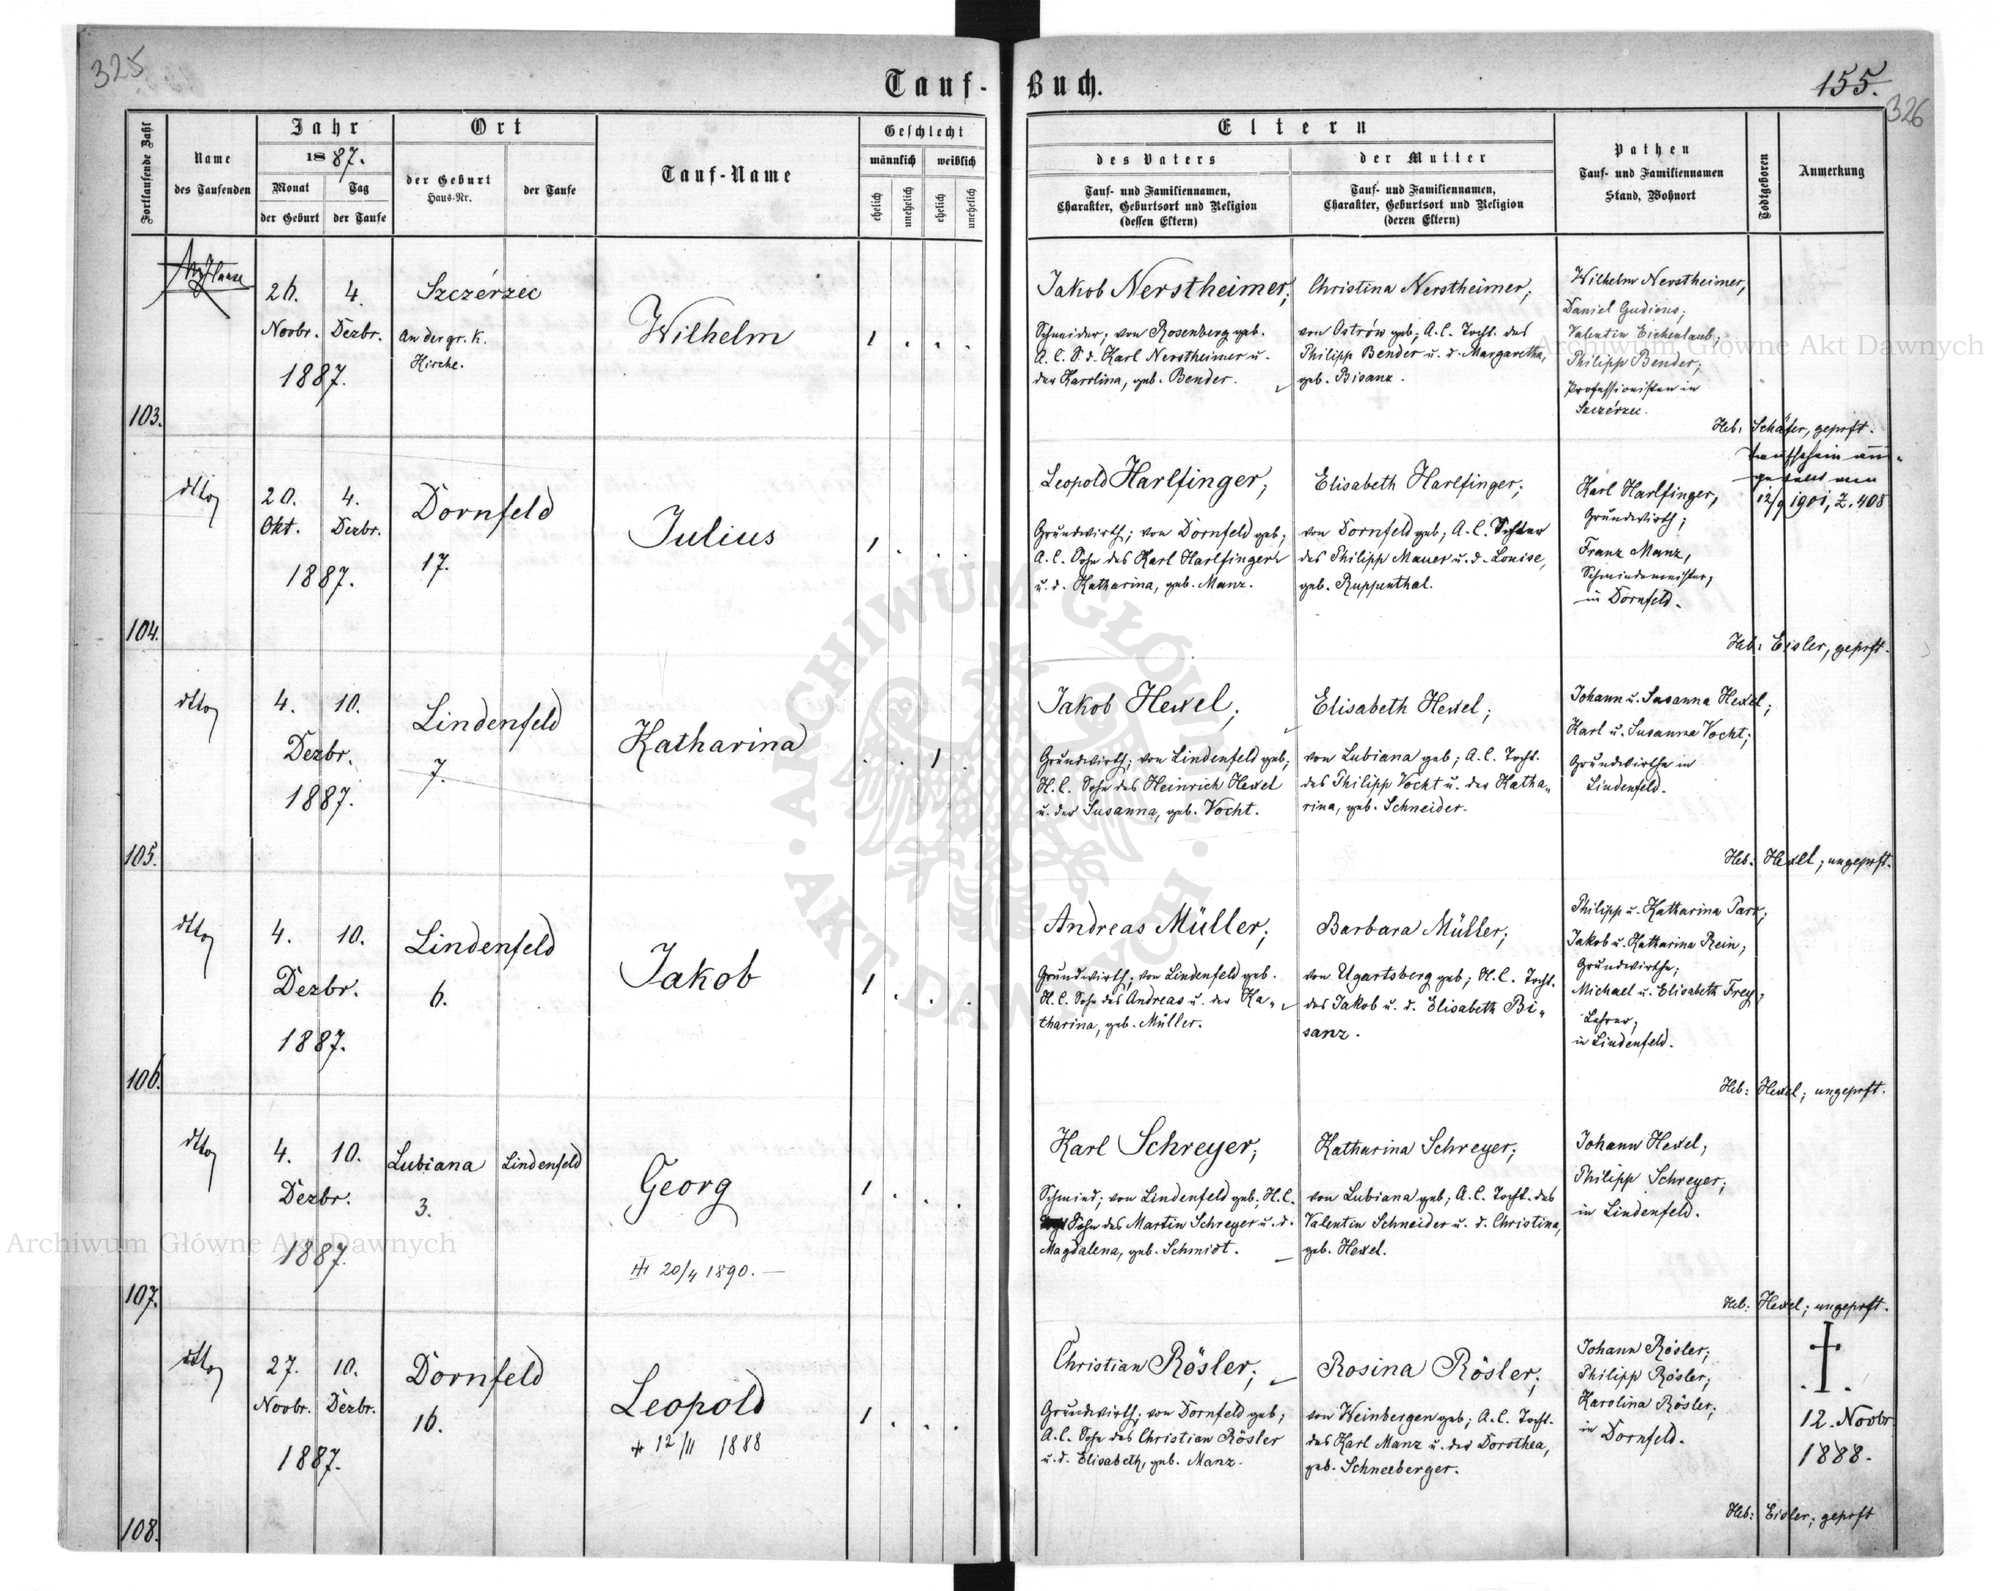 325
Tauf-Buch.
155.
326
Fortlaufende Zahl
Name
des Taufenden
Jahr
1887.
Monat
der Geburt
Tag
der Taufe
Ort
der Geburt
Haus-Nr.
der Taufe
Tauf-Name
Geschlecht
männlich
weiblich
ehelich
unehelich
ehelich
unehelich
Eltern
des Vaters
Tauf- und Familiennamen,
Charakter, Geburtsort und Religion
(dessen Eltern)
der Mutter
Tauf- und Familiennamen,
Charakter, Geburtsort und Religion
(deren Eltern)
Pathen
Tauf- und Familiennamen
Stand, Wohnort
Todtgeboren
Anmerkung
103.
26. 4.
Novbr. Dezbr.
1887.
Szczérzec
An der gr. K.
Kirche.
Wilhelm
1 . . .
Jakob Nerstheimer;
Schneider; von Rosenberg geb.
A. C. S. d. Karl Nerstheimer u.
der Karolina, geb. Bender.
Christina Nerstheimer;
von Ostrów geb; A. C. Tocht. des
Philipp Bender u. d. Margaretha,
geb. Bisanz.
Wilhelm Nerstheimer,
Daniel Gudions;
Valentin Eichenlaub;
Philipp Bender;
Professionisten in
Szczérzec.
Heb: Schäfer, geprft.
104.
dtto
20. 4.
Okt. Dezbr.
1887.
Dornfeld
17.
Julius
1 . . .
Leopold Harlfinger;
Grundwirth; von Dornfeld geb;
A. C. Sohn des Karl Harlfinger
u. d. Katharina, geb. Manz.
Elisabeth Harlfinger;
von Dornfeld geb; A. C. Tochter
des Philipp Mauer u. d. Louise,
geb. Ruppenthal.
Karl Harlfinger,
Grundwirth;
Franz Manz,
Schmiedemeister,
in Dornfeld.
Taufschein aus-
12/9 1901, Z. 408
Heb: Eisler, geprft.
105.
dtto
4. 10.
Dezbr.
1887.
Lindenfeld
7.
Katharina
. . 1 .
Jakob Hexel;
Grundwirth; von Lindenfeld geb;
H. C. Sohn des Heinrich Hexel
u. der Susanna, geb. Vocht.
Elisabeth Hexel;
von Lubiana geb; A. C. Tocht.
des Philipp Vocht u. der Katha-
rina, geb. Schneider.
Johann u. Susanna Hexel;
Karl u. Susanna Vocht;
Grundwirthe in
Lindenfeld.
Heb: Hexel; ungeprft.
106.
dtto
4. 10.
Dezbr.
1887.
Lindenfeld
6.
Jakob
1 . . .
Andreas Müller;
Grundwirth; von Lindenfeld geb.
H. C. Sohn des Andreas u. der Ka-
tharina, geb. Müller.
Barbara Müller;
von Ugartsberg geb; H. C. Tocht.
des Jakob u. d. Elisabeth Bi-
sanz.
Philipp u. Katharina Parr;
Jakob u. Katharina Rein;
Grundwirthe;
Michael u. Elisabeth Frey;
Lehrer;
in Lindenfeld.
Heb: Hexel; ungeprft.
107.
dtto
4. 10.
Dezbr.
1887.
Lubiana
3.
Lindenfeld
Georg
20/4 1890. —
1 . . .
Karl Schreyer;
Schmied; von Lindenfeld geb. H. C.
Sohn des Martin Schreyer u. d.
Magdalena, geb. Schmidt.
Katharina Schreyer;
von Lubiana geb; A. C. Tocht. des
Valentin Schneider u. d. Christina,
geb. Hexel.
Johann Hexel;
Philipp Schreyer;
in Lindenfeld.
Heb: Hexel; ungeprft.
108.
dtto
27. 10.
Novbr. Dezbr.
1887.
Dornfeld
16.
Leopold
12/11 1888
1 . . .
Christian Rösler;
Grundwirth; von Dornfeld geb;
A. C. Sohn des Christian Rösler
u. d. Elisabeth, geb. Manz.
Rosina Rösler;
von Weinbergen geb; A. C. Tocht.
des Karl Manz u. der Dorothea,
geb. Schneeberger.
Johann Rösler;
Philipp Rösler;
Karolina Rösler;
in Dornfeld.
†
12. Novbr
1888.
Heb: Eisler; geprft
Archiwum Główne Akt Dawnych
Archiwum Główne Akt Dawnych
· ARCHIWUM GŁÓWNE ·
AKT DAWNYCH